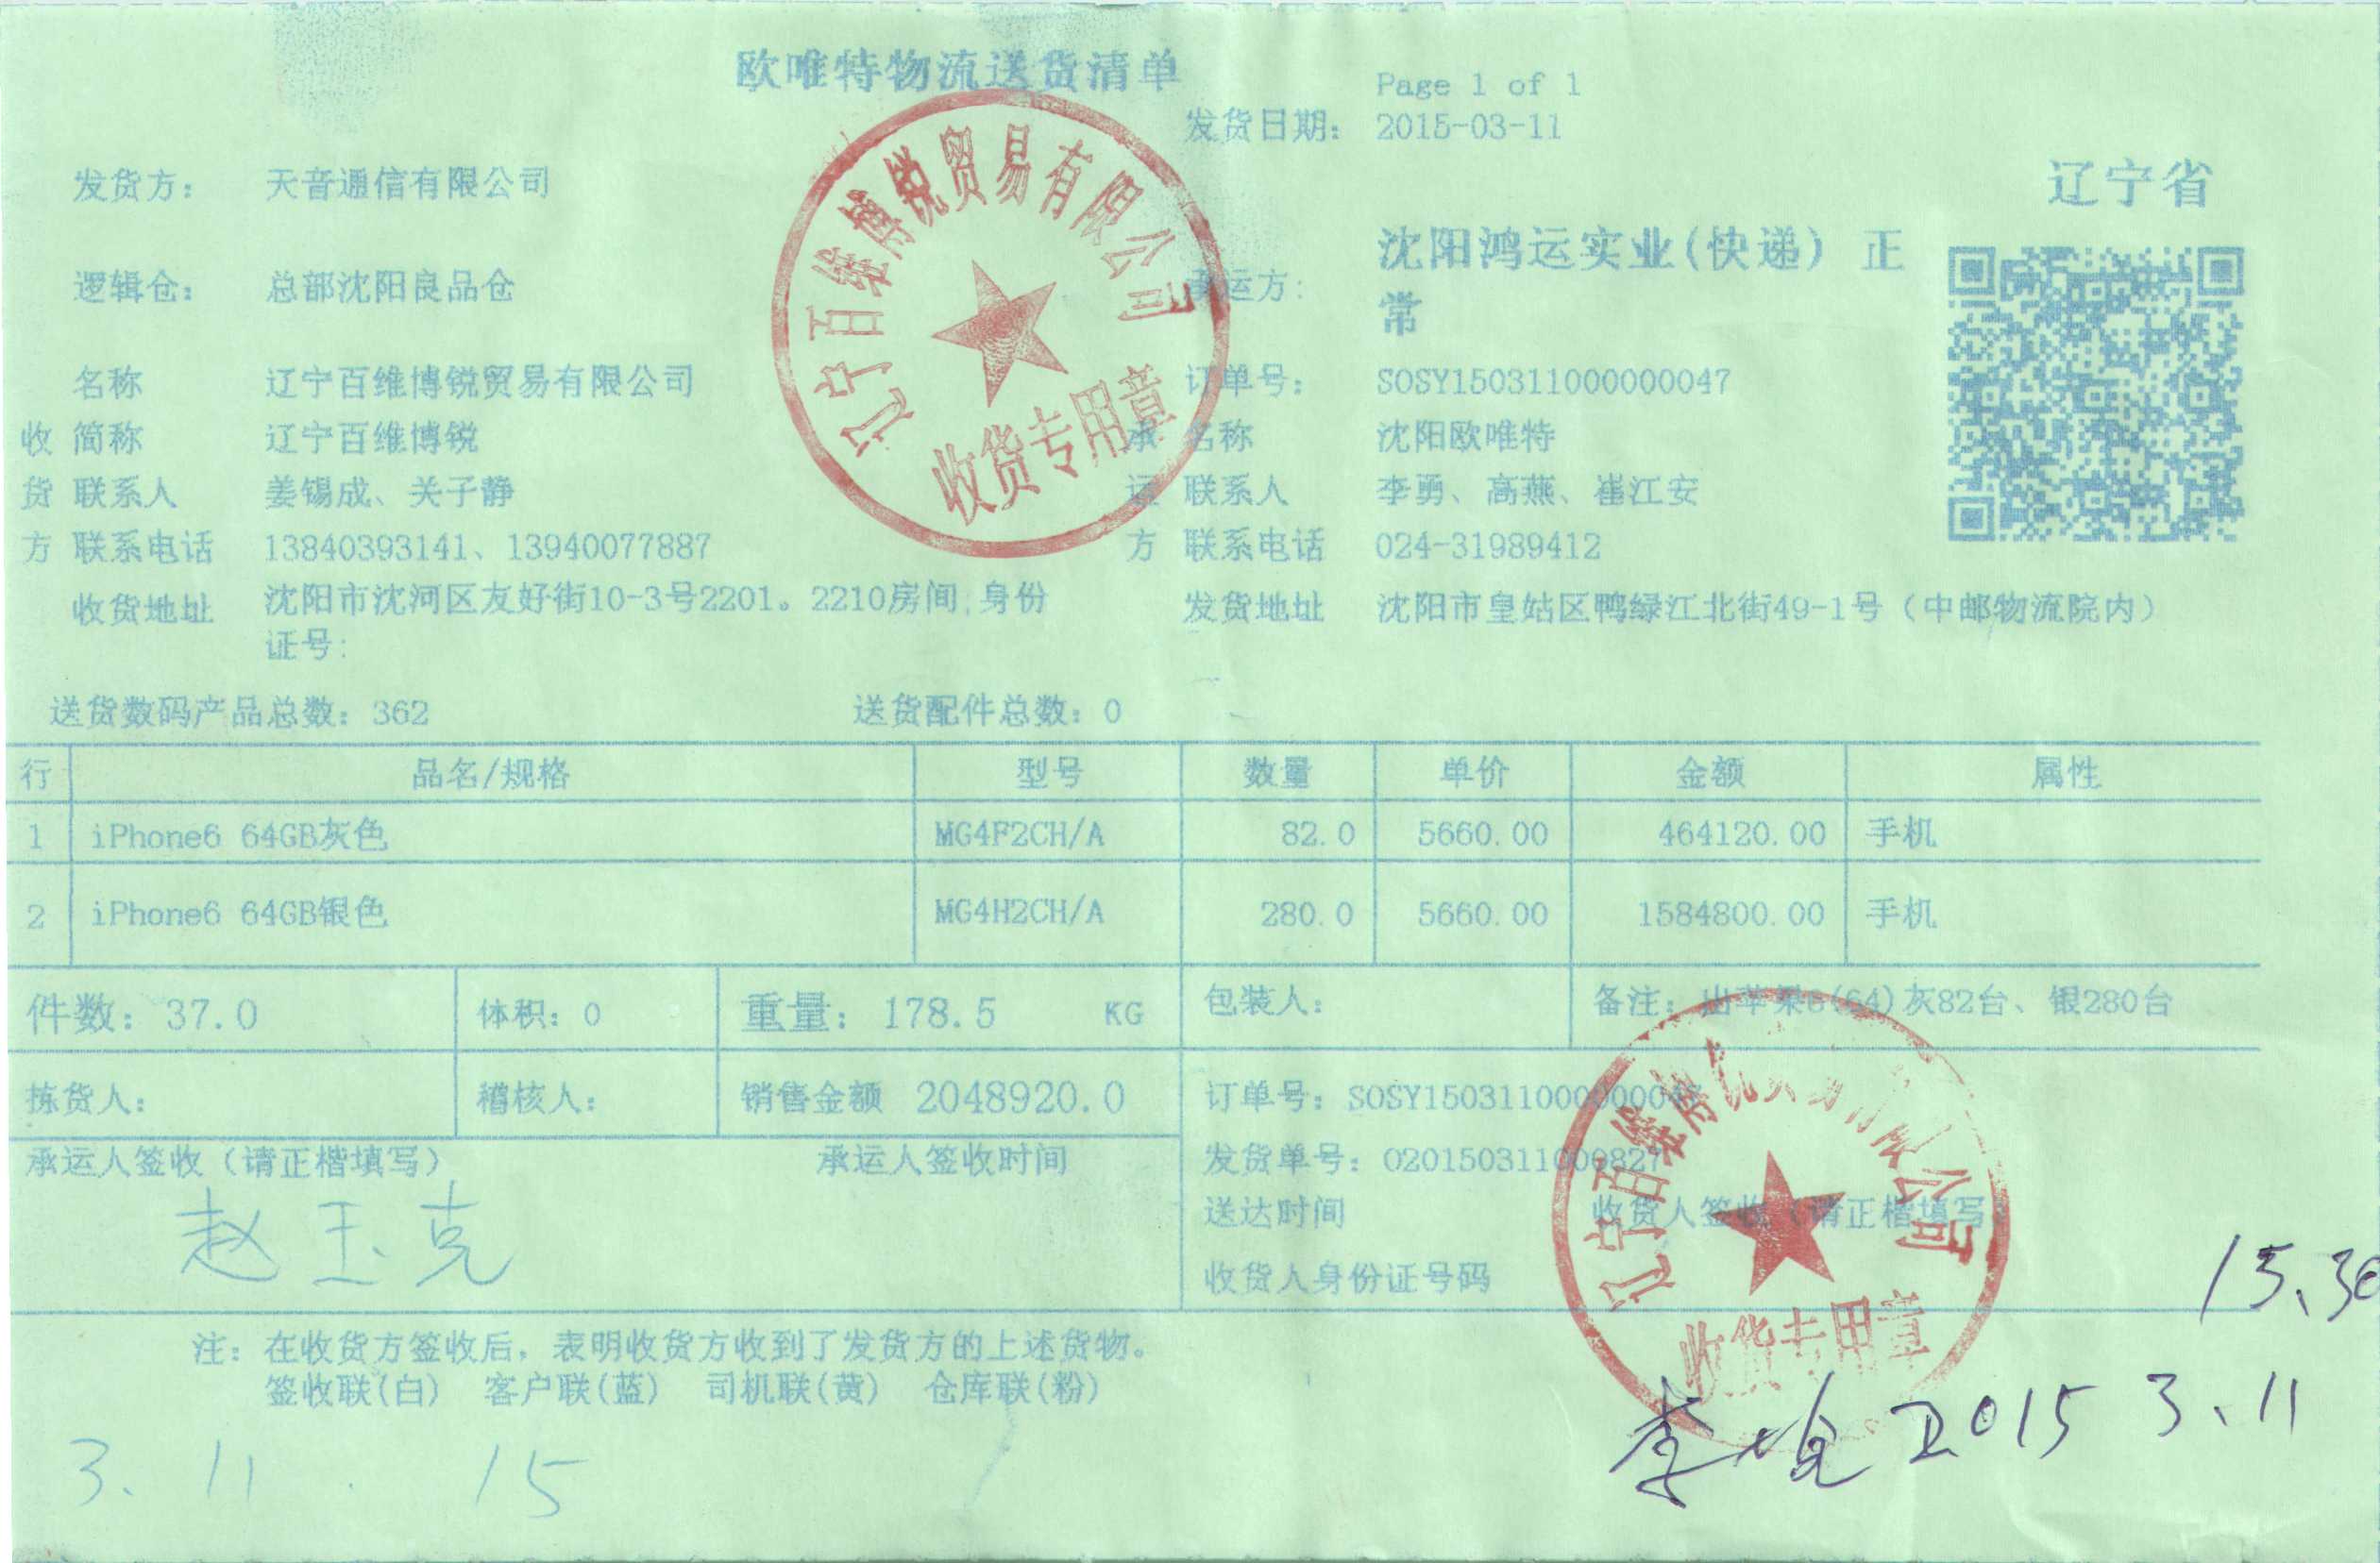 欧唯特物流送货清单
Page 1 of 1
发货日期: 2015-03-11
发货方: 天音通信有限公司
辽宁省
逻辑仓: 总部沈阳良品仓
承运方: 沈阳鸿运实业(快递) 正常
名称 辽宁百维博锐贸易有限公司
订单号: SOSY150311000000047
收 简称 辽宁百维博锐
承 名称 沈阳欧唯特
货 联系人 姜锡成、关子静
运 联系人 李勇、高燕、崔江安
方 联系电话 13840393141、13940077887
方 联系电话 024-31989412
收货地址 沈阳市沈河区友好街10-3号2201。2210房间,身份
证号:
发货地址 沈阳市皇姑区鸭绿江北街49-1号（中邮物流院内）
辽宁百维博锐贸易有限公司
收货专用章
送货数码产品总数: 362 送货配件总数: 0
行 品名/规格 型号 数量 单价 金额 属性
1 iPhone6 64GB灰色 MG4F2CH/A 82.0 5660.00 464120.00 手机
2 iPhone6 64GB银色 MG4H2CH/A 280.0 5660.00 1584800.00 手机
件数: 37.0 体积: 0 重量: 178.5 KG 包装人: 备注: 出苹果6(64)灰82台、银280台
拣货人: 稽核人: 销售金额 2048920.0 订单号: SOSY150311000000047
承运人签收（请正楷填写） 承运人签收时间 发货单号: O20150311000827
赵玉克
送达时间 收货人签收（请正楷填写）
收货人身份证号码
15.30
辽宁百维博锐贸易有限公司
收货专用章
注: 在收货方签收后, 表明收货方收到了发货方的上述货物。
签收联(白) 客户联(蓝) 司机联(黄) 仓库联(粉)
2015 3.11
3. 11. 15